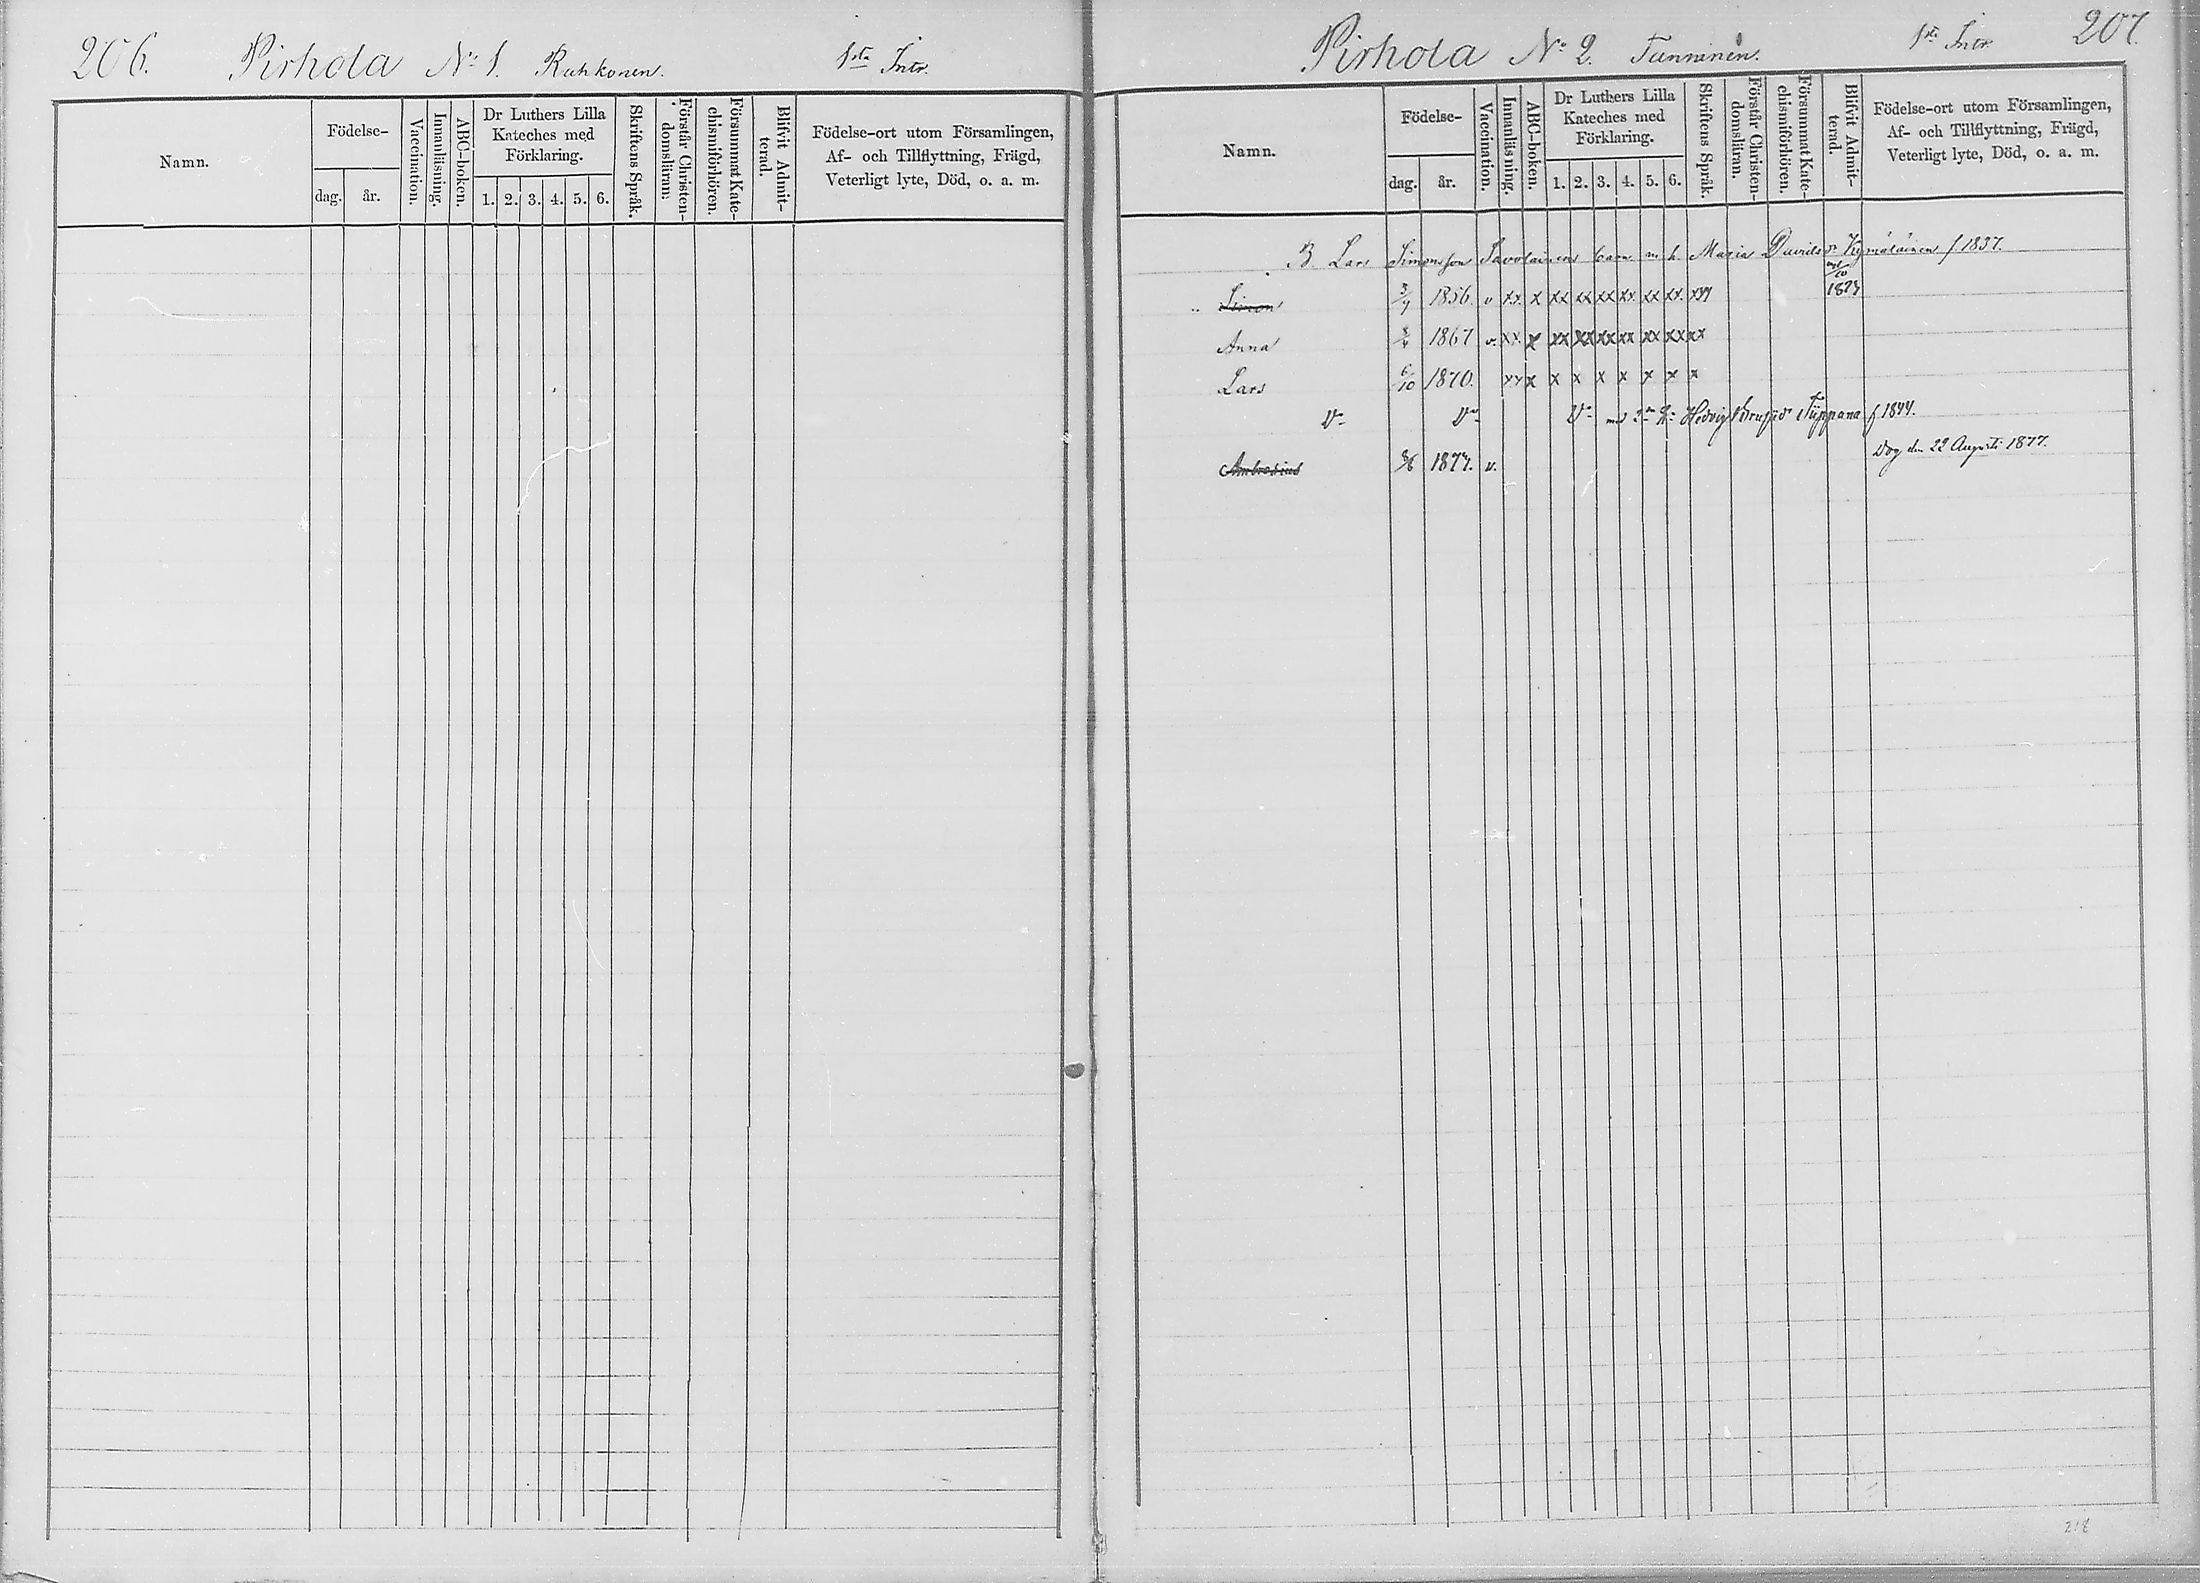 206. Pirhola No 1. Ruhkonen. 1sta Intr.
Namn.
Födelse-
dag. år.
Vaccination.
Innanläsning.
ABC-boken.
Dr Luthers Lilla
Kateches med
Förklaring.
1. 2. 3. 4. 5. 6.
Skriftens Språk.
Förstår Christen-
domsläran.
Försummat Kate-
chismiförhören.
Blifvit Admit-
terad.
Födelse-ort utom Församlingen,
Af- och Tillflyttning, Frägd,
Veterligt lyte, Död, o. a. m.
Pirhola No 2. Tunninen. 1sta Intr. 207.
Namn.
Födelse-
dag. år.
Vaccination.
Innanläsning.
ABC-boken.
Dr Luthers Lilla
Kateches med
Förklaring.
1. 2. 3. 4. 5. 6.
Skriftens Språk.
Förstår Christen-
domsläran.
Försummat Kate-
chismiförhören.
Blifvit Admit-
terad.
Födelse-ort utom Församlingen,
Af- och Tillflyttning, Frägd,
Veterligt lyte, Död, o. a. m.
B. Lars Simonsson Savolainens barn m. h. Maria Davidsdr Kymäläinen f 1837.
Simon 3/7 1856. v xx. x xx xx xx xx. xx xx.
Anna 1867 v. xx x xx xx xx xx xx xx xx
Lars 6/10 1870. xx x x x x x x x x
Do Do Do med 2a h. Hedvig Tiippana f 1844.
Ambrosius 1877. v. Dog den 22 Augusti 1877.
218